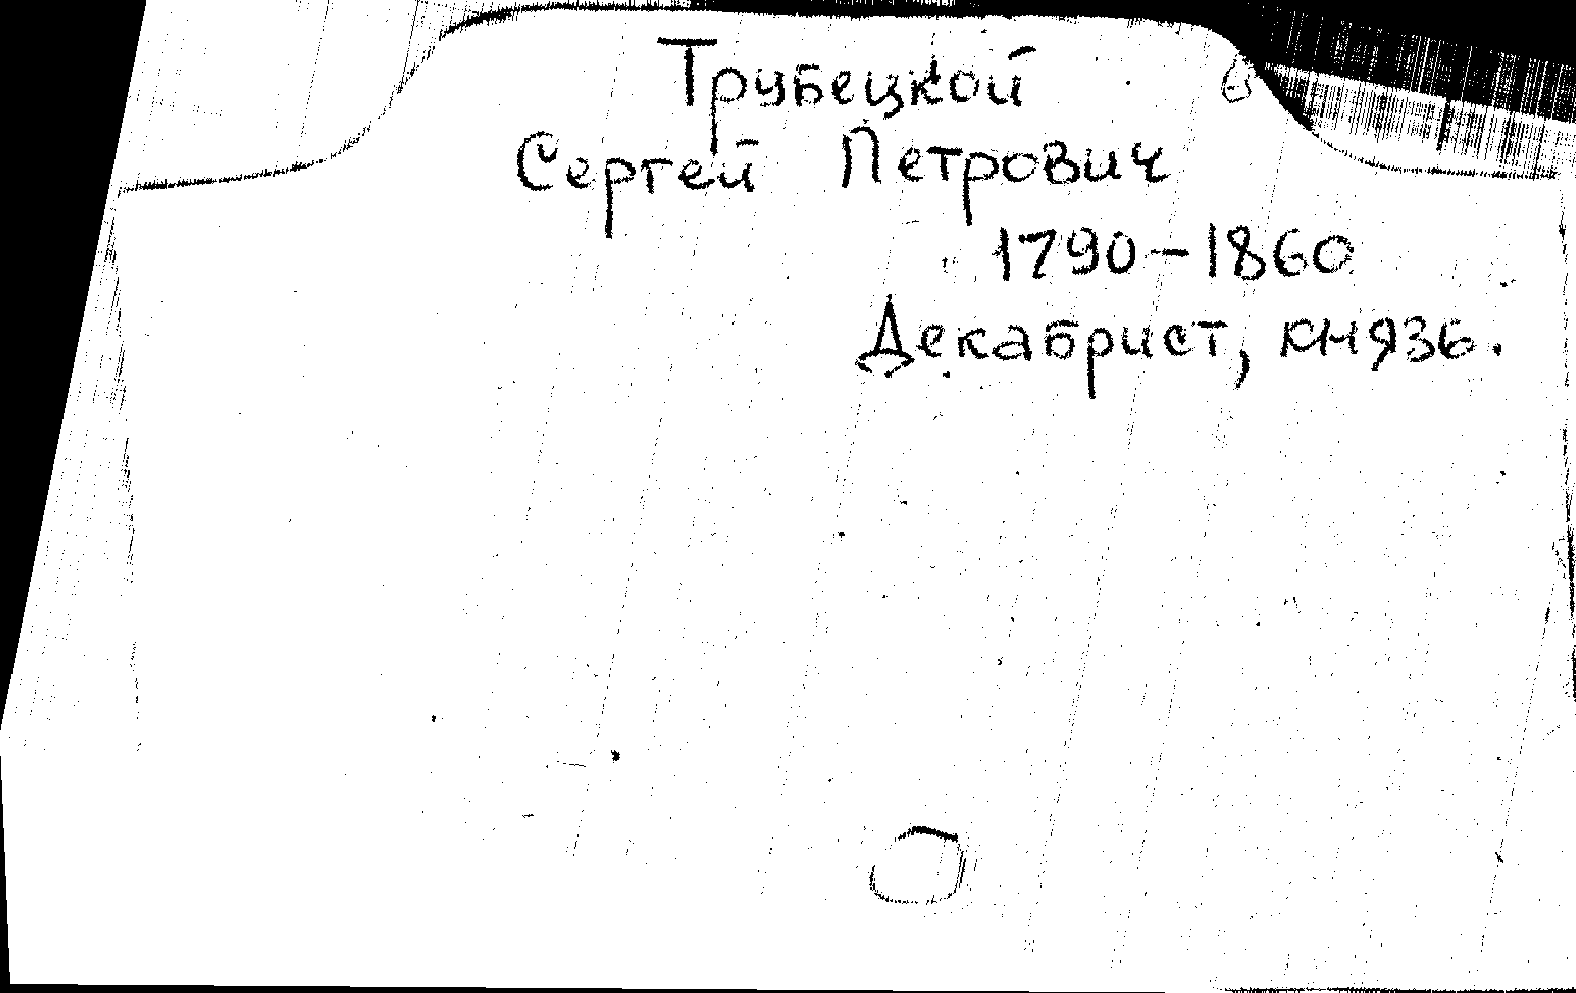 Трубецкой
Сергей Петрович
1790-1860
Декабрист, князь.